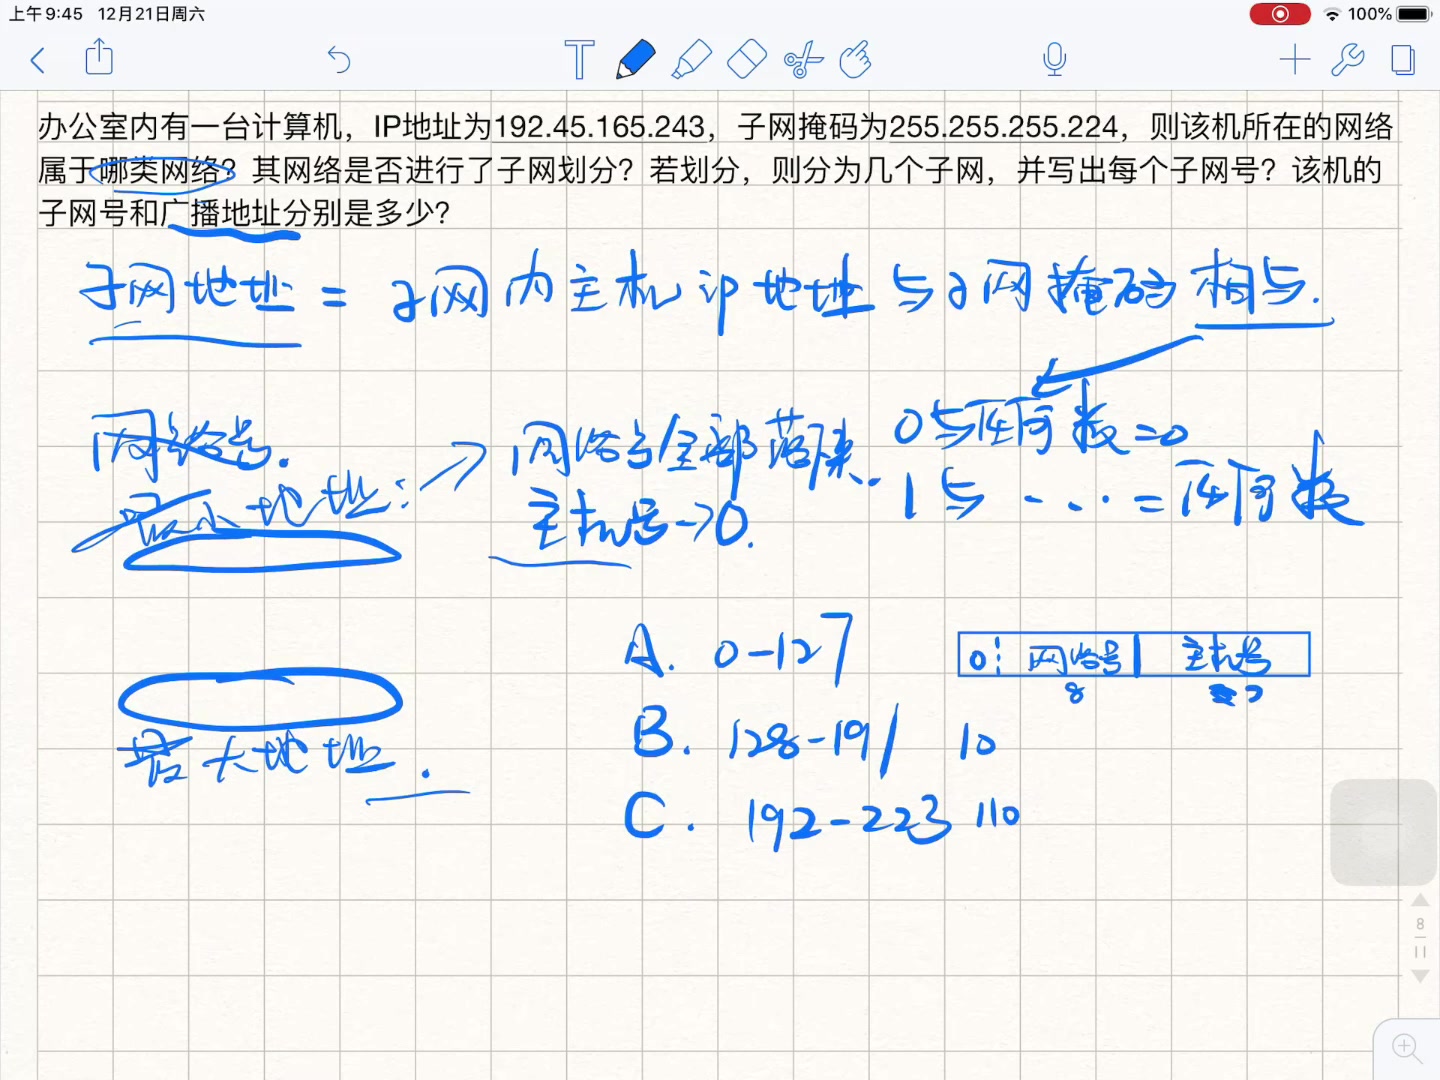 上午9:45 12月21日周六
100%
T
办公室内有一台计算机，IP地址为192.45.165.243，子网掩码为255.255.255.224，则该机所在的网络
属于哪类网络？其网络是否进行了子网划分？若划分，则分为几个子网，并写出每个子网号？该机的
子网号和广播地址分别是多少？
子网地址 = 子网内主机ip地址与子网掩码相与.
网络号.
最小地址:
网络号全部落下来.
主机号→0.
0与任何数=0
1与 ... = 任何数
最大地址.
A. 0-127
0 网络号 主机号
8
B. 128-191 10
C. 192-223 110
8
11